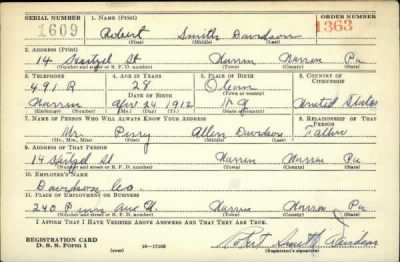 SERIAL NUMBER 1. NAME (Print) ORDER NUMBER
1609 Robert Smith Davidson 1363
(First) (Middle) (Last)
2. ADDRESS (Print)
14 St Warren Warren Pa
(Number and street or R. F. D. number) (Town) (County) (State)
3. TELEPHONE 4. AGE IN YEARS 5. PLACE OF BIRTH 6. COUNTRY OF CITIZENSHIP
491 R 28 Olean
DATE OF BIRTH (Town or county)
Warren April 24, 1912 N.Y. United States
(Exchange) (Number) (Mo.) (Day) (Yr.) (State or country)
7. NAME OF PERSON WHO WILL ALWAYS KNOW YOUR ADDRESS 8. RELATIONSHIP OF THAT PERSON
Mr. Perry Allen Davidson Father
(Mr., Mrs., Miss) (First) (Middle) (Last)
9. ADDRESS OF THAT PERSON
14 St Warren Warren Pa
(Number and street or R. F. D. number) (Town) (County) (State)
10. EMPLOYER'S NAME
Davidson Co.
11. PLACE OF EMPLOYMENT OR BUSINESS
240 Penna Ave W. Warren Warren Pa
(Number and street or R. F. D. number) (Town) (County) (State)
I AFFIRM THAT I HAVE VERIFIED ABOVE ANSWERS AND THAT THEY ARE TRUE.
REGISTRATION CARD
D. S. S. Form 1 (over) 16—17105 Robert Smith Davidson
(Registrant's signature)